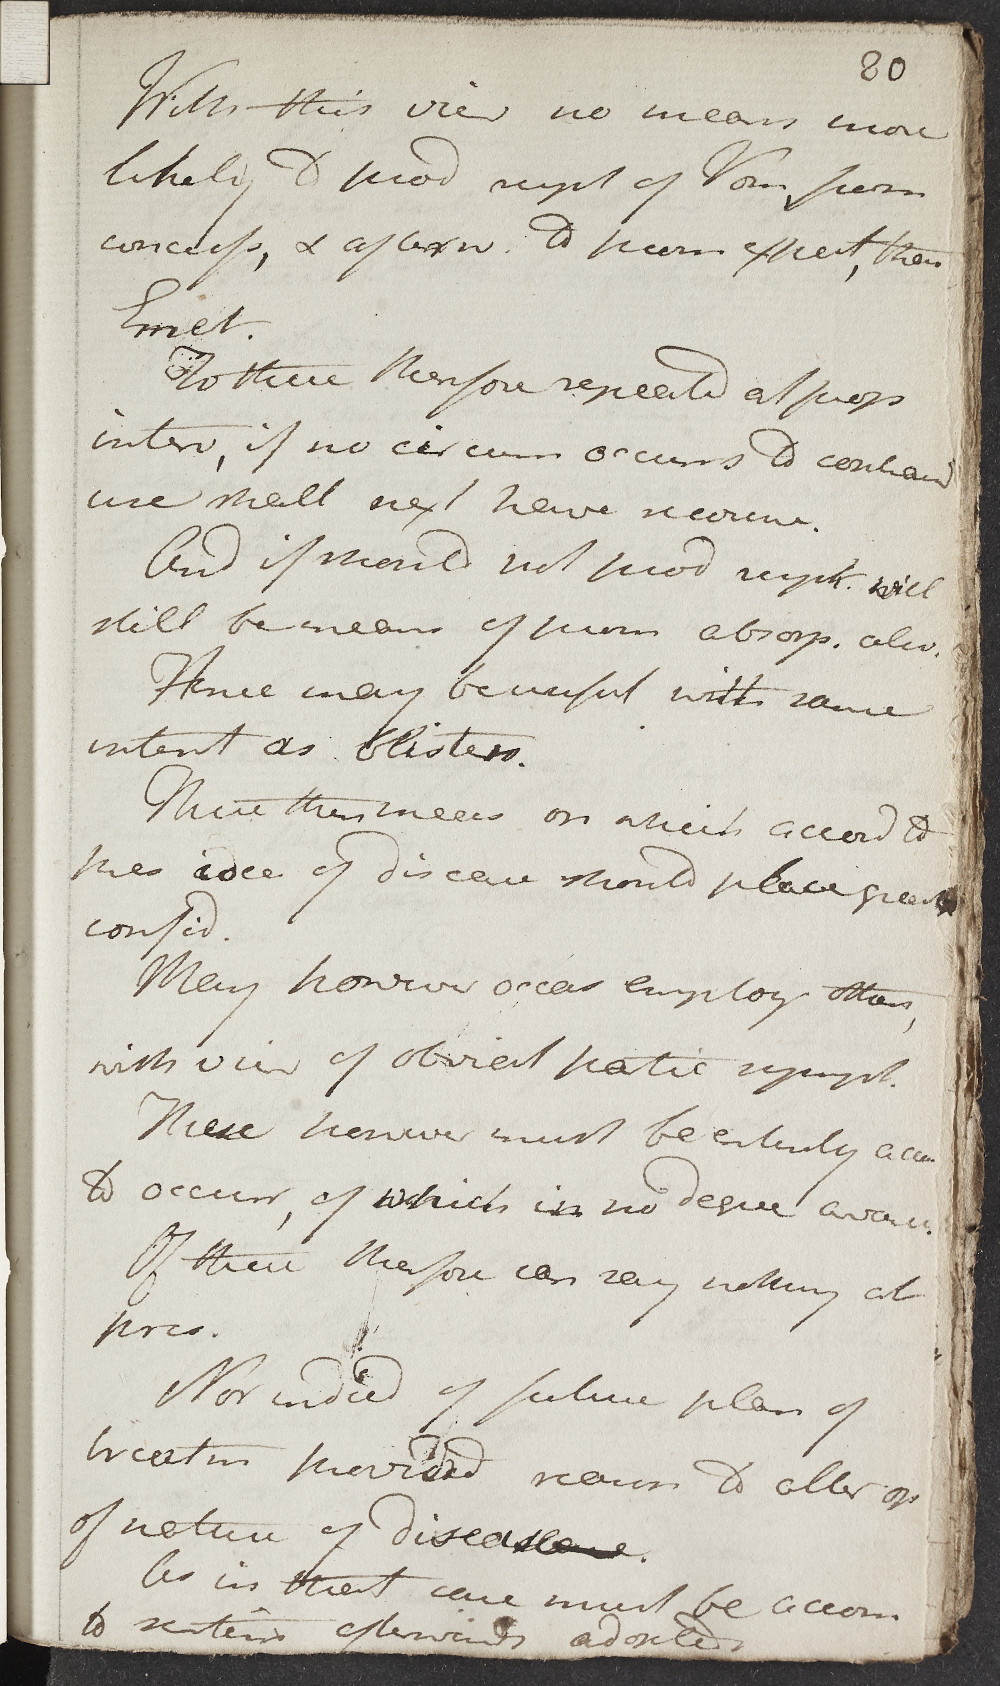 80
With this view no means more
likely to prod rupt of Vom, from
concuss, & afterw. to prom expect, than
Emet.
To these therefore repeated at prop
interv, if no circum occurs to contraind
use shall next have recourse.
And if should not prod rupt. will
still be means of prom absorp. also.
Hence may be useful with same
intent as blisters.
These then means on which accord to
pres idea of disease should place great
confid.
May however occas employ others,
with view of obviat partic sympt.
These however must be entirely accom
to occurr, of which in no degree aware.
Of these therefore can say nothing at
pres.
Nor indeed of future plan of
treatm provided reason to alter op
of nature of disease.
As in that case must be accom
to sentim afterwards adopted